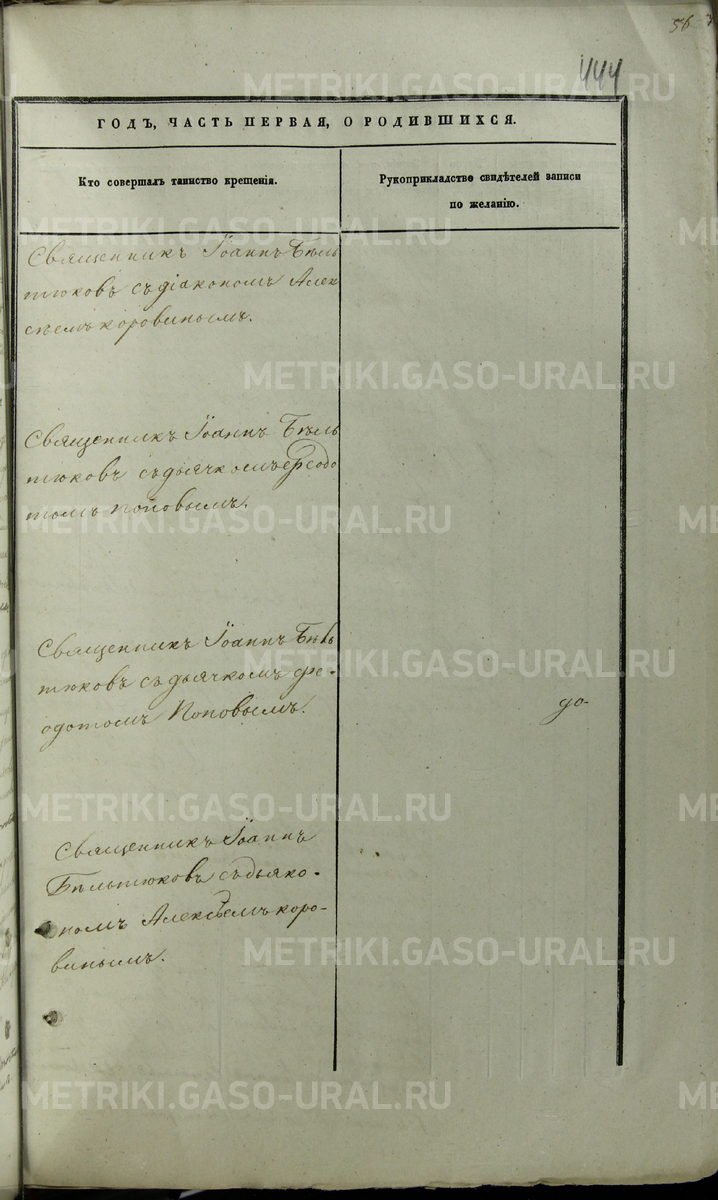 56
444
ГОДЪ, ЧАСТЬ ПЕРВАЯ, О РОДИВШИХСЯ.
Кто совершалъ таинство крещенія.
Рукоприкладство свидѣтелей записи
по желанію.
Священникъ Іоаннъ Бѣль
тюковъ съ діакономъ Алек
сѣемъ Коровинымъ.
Священникъ Іоаннъ Бѣль
тюковъ съ дьячкомъ Ѳедо
томъ Поповымъ.
Священникъ Іоаннъ Бѣль
тюковъ съ дьячкомъ Фе-
одотомъ Поповымъ.
до-
Священникъ Іоаннъ
Бѣльтюковъ съ дьяко-
номъ Алексѣемъ Коро-
винымъ.
METRIKI.GASO-URAL.RU